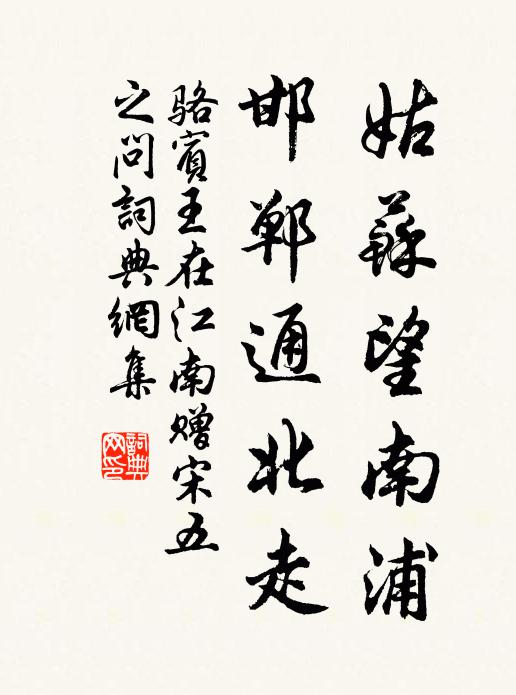 姑蘇望南浦
邯鄲通北走
駱賓王在江南赠宋五
之问詞典網集
詞典网印